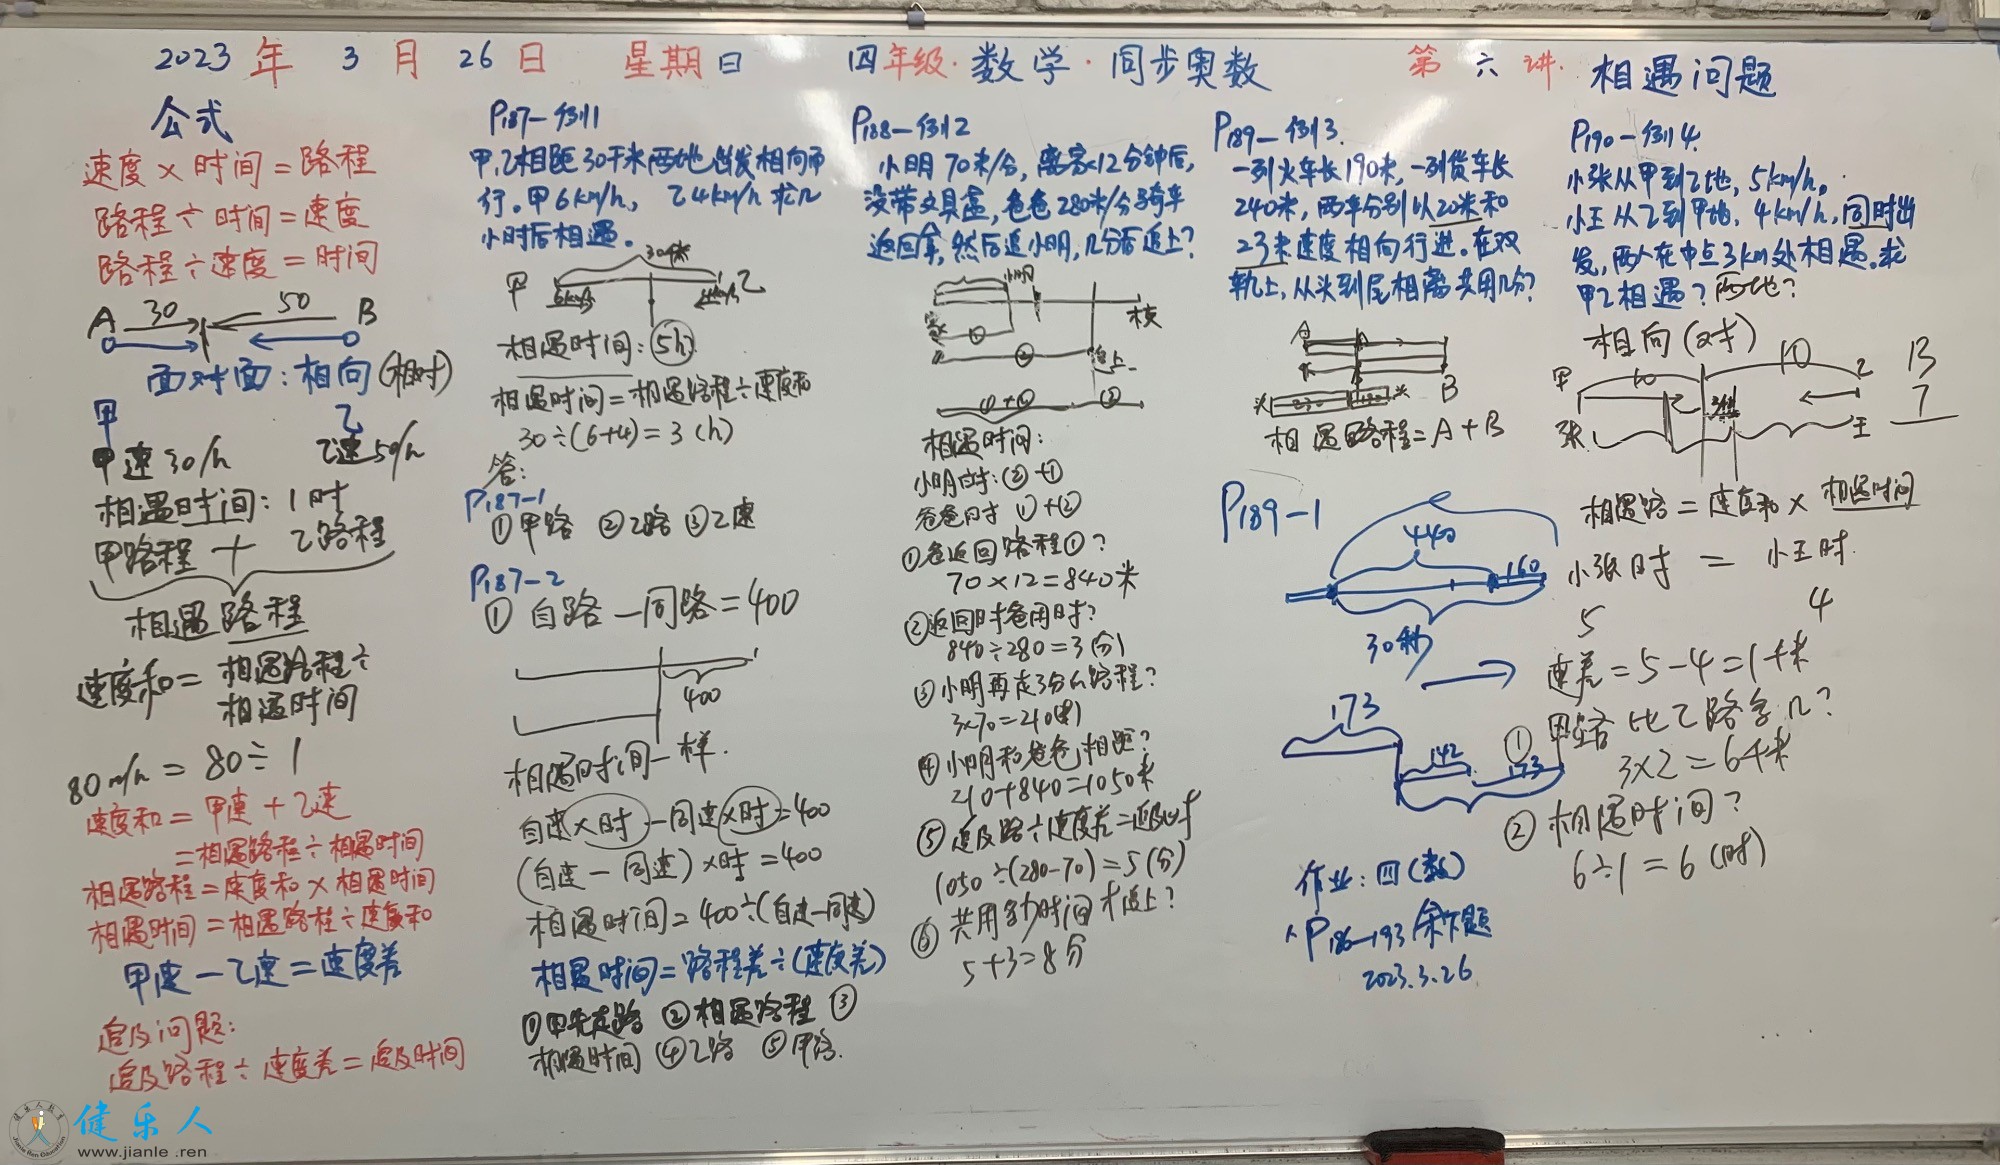 2023 年 3 月 26 日 星期日 四年级·数学·同步奥数 第 六 讲· 相遇问题
公式
速度 × 时间 = 路程
路程 ÷ 时间 = 速度
路程 ÷ 速度 = 时间
A 30 50 B
面对面：相向(相对)
甲 乙
甲速30/h 乙速50/h
相遇时间：1时
甲路程 + 乙路程
相遇路程
速度和 = 相遇路程 ÷
相遇时间
80m/h = 80÷1
速度和 = 甲速 + 乙速
=相遇路程÷相遇时间
相遇路程=速度和×相遇时间
相遇时间=相遇路程÷速度和
甲速－乙速=速度差
追及问题:
追及路程÷速度差=追及时间
P187－例1
甲、乙相距30千米两地出发相向而
行。甲6km/h, 乙4km/h 求几
小时后相遇。
30千米
甲 6km/h 4km/h 乙
相遇时间: 5h
相遇时间=相遇路程÷速度和
30÷(6+4)=3(h)
答:
P187-1
①甲路 ②乙路 ③乙速
P187-2
① 自路－同路=400
400
相遇时间一样.
自速×时－同速×时=400
(自速－同速)×时=400
相遇时间=400÷(自速－同速)
相遇时间=路程差÷(速度差)
①甲先走路 ②相遇路程 ③
相遇时间 ④乙路 ⑤甲路.
P188－例2
小明70米/分, 离家12分钟后,
没带文具盒, 爸爸280米/分骑车
返回拿, 然后追小明, 几分后追上?
小明
家 ① 校
② 追上
①+② ②
相遇时间:
小明时: ②-①
爸爸时 ①+②
①爸返回路程①?
70×12=840米
②返回时爸用时?
840÷280=3(分)
③小明再走3分的路程?
3×70=210(米)
④小明和爸爸相距?
210+840=1050米
⑤追及路÷速度差=追及时
1050÷(280-70)=5(分)
⑥共用多少时间才追上?
5+3=8分
P189－例3.
一列火车长190米, 一列货车长
240米, 两车分别以20米和
23米速度相向行进。在双
轨上, 从头到尾相离共用几分?
A
B
相遇路程=A+B
P189-1
440
160
30秒
173
142 173
作业: 四(数)
P186-193余下题
2023.3.26
P190－例4.
小张从甲到乙地, 5km/h。
小王从乙到甲地. 4km/h, 同时出
发, 两人在中点3km处相遇。求
甲乙相遇? 两地?
相向(对)
10 13
甲 10 乙 7
张 王
相遇路=速度和×相遇时间
小张时 = 小王时.
5 4
速差=5-4=1千米
① 甲路比乙路多几?
3×2=6千米
② 相遇时间?
6÷1=6(时)
健乐人
www.jianle.ren